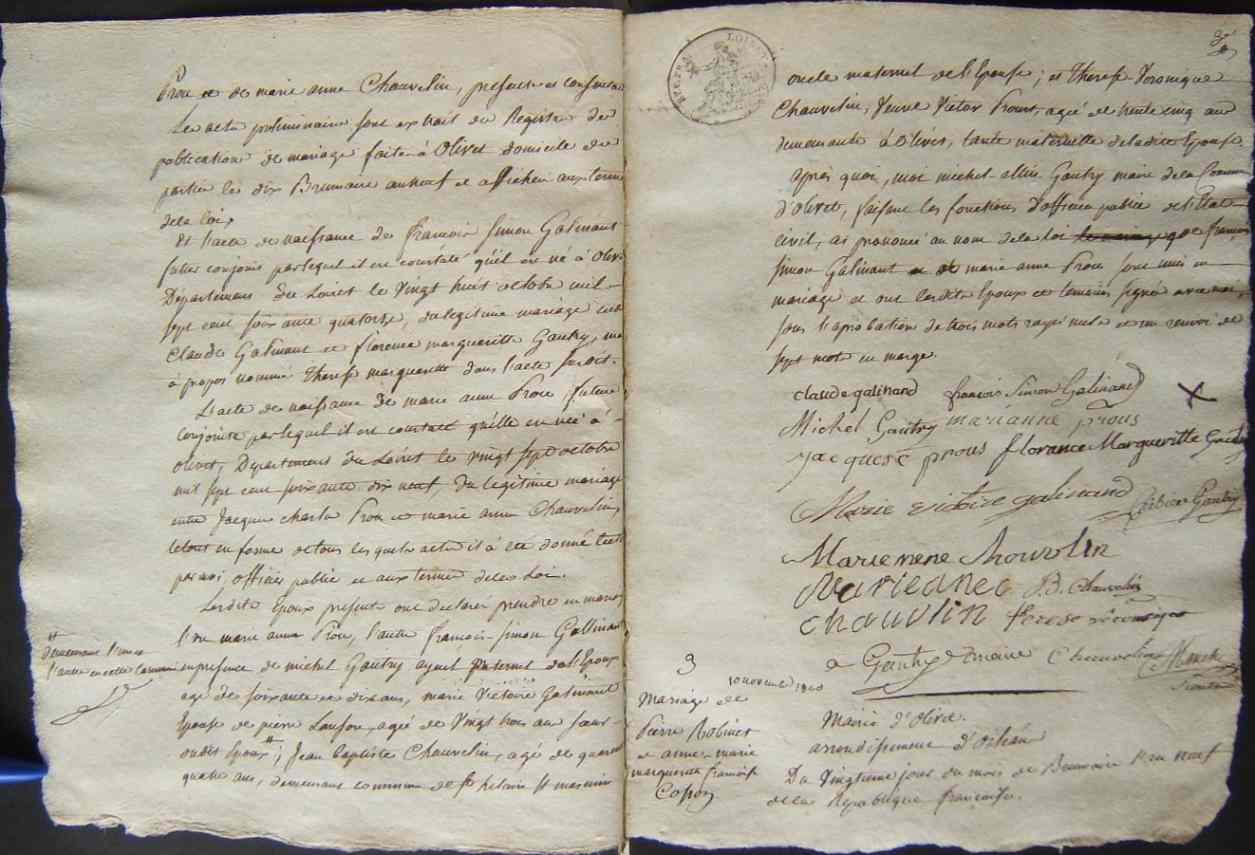 Prou et de marie anne Chauvelin, presents et consentants
Les actes preliminaires sont extrait du Registre de
publication de mariage faite à Olivet domicile des
parties le dix Brumaire an neuf et affichée aux termes
de la loi,
Et l'acte de naissance de françois simon Galinant
futur conjoins par lequel il est constaté qu'il est né à Olivet
Département du Loiret le Vingt huit octobre mil
sept cent soixante quatorze, du legitime mariage entre
Claude Galinant et florence margueritte Gautry, mal
à propos nommée therese margueritte dans l'acte susdit.
L'acte de naissance de marie anne Prou future
conjointe par lequel il est constaté qu'elle est née à
olivet, Département du Loiret le vingt sept octobre
mil sept cent soixante dix neuf, du legitime mariage
entre Jacques charles Prou et marie anne Chauvelin,
le tout en forme de tous lesquels actes il à été donné lecture
par moi, officier public et aux termes de la Loi.
Lesdits Epoux presents ont declaré prendre en mariage
l'un marie anne Prou, l'autre françois simon Gallinant
en presence de michel Gautry ayeul paternel de l'Epoux
agé de soixante et dix ans, marie Victoire Galinant
Epouse de pierre agée de Vingt trois ans sœur
dudit Epoux #; Jean baptiste Chauvelin, agé de quarante
quatre ans, demeurant commune de st hilaire st mesmin
#
demeurant l'un et
l'autre en cette commune
oncle maternel de l'Epouse; et therese Veronique
Chauvelin, Veuve Victor Prous, agée de trente cinq ans
demeurante à Olivet, tante maternelle de ladite Epouse
après quoi, moi michel Gautry maire de la Commune
d'Olivet, faisant les fonctions d'officier public de l'Etat
civil, ai prononcé au nom de la loi que françois
simon Galinant et marie anne Prou sont unis en
mariage et ont lesdits Epoux et temoins signé avec moi,
sous l'aprobation de trois mots rayé nuls et un renvoi de
sept mots en marge.
claude galinand françois Simon Galinand
Michel Gautry marianne prous
Jacques C prous florance Margueritte Gautry
Marie victoire galinand Gautry
Marie Chouvlin
Marieanee J. B. Chauvelin
chauvlin terese
Gautry maire Chauvelin
3
10 novembre 1800
Mariage de
Pierre Robinet
et anne marie
marguerite françoise
Mairie d'Olivet.
arrondissement d'Orléans
Du Vingtieme jour du mois de Brumaire l'an neuf
de la Republique française.